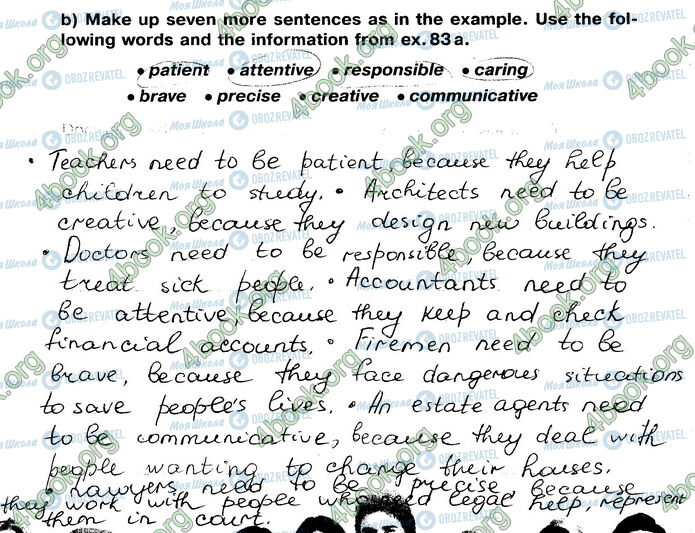 b) Make up seven more sentences as in the example. Use the fol-
lowing words and the information from ex. 83 a.
• patient • attentive • responsible • caring
• brave • precise • creative • communicative
• Teachers need to be patient because they help
children to study. • Architects need to be
creative, because they design new buildings.
• Doctors need to be responsible, because they
treat sick people. • Accountants need to
be attentive because they keep and check
financial accounts. • Firemen need to be
brave, because they face dangerous situations
to save people's lives. • An estate agents need
to be communicative, because they deal with
people wanting to change their houses.
• Lawyers need to be precise because
they work with people who need legal help represent
them in court.
4book.org
Моя Школа
OBOZREVATEL